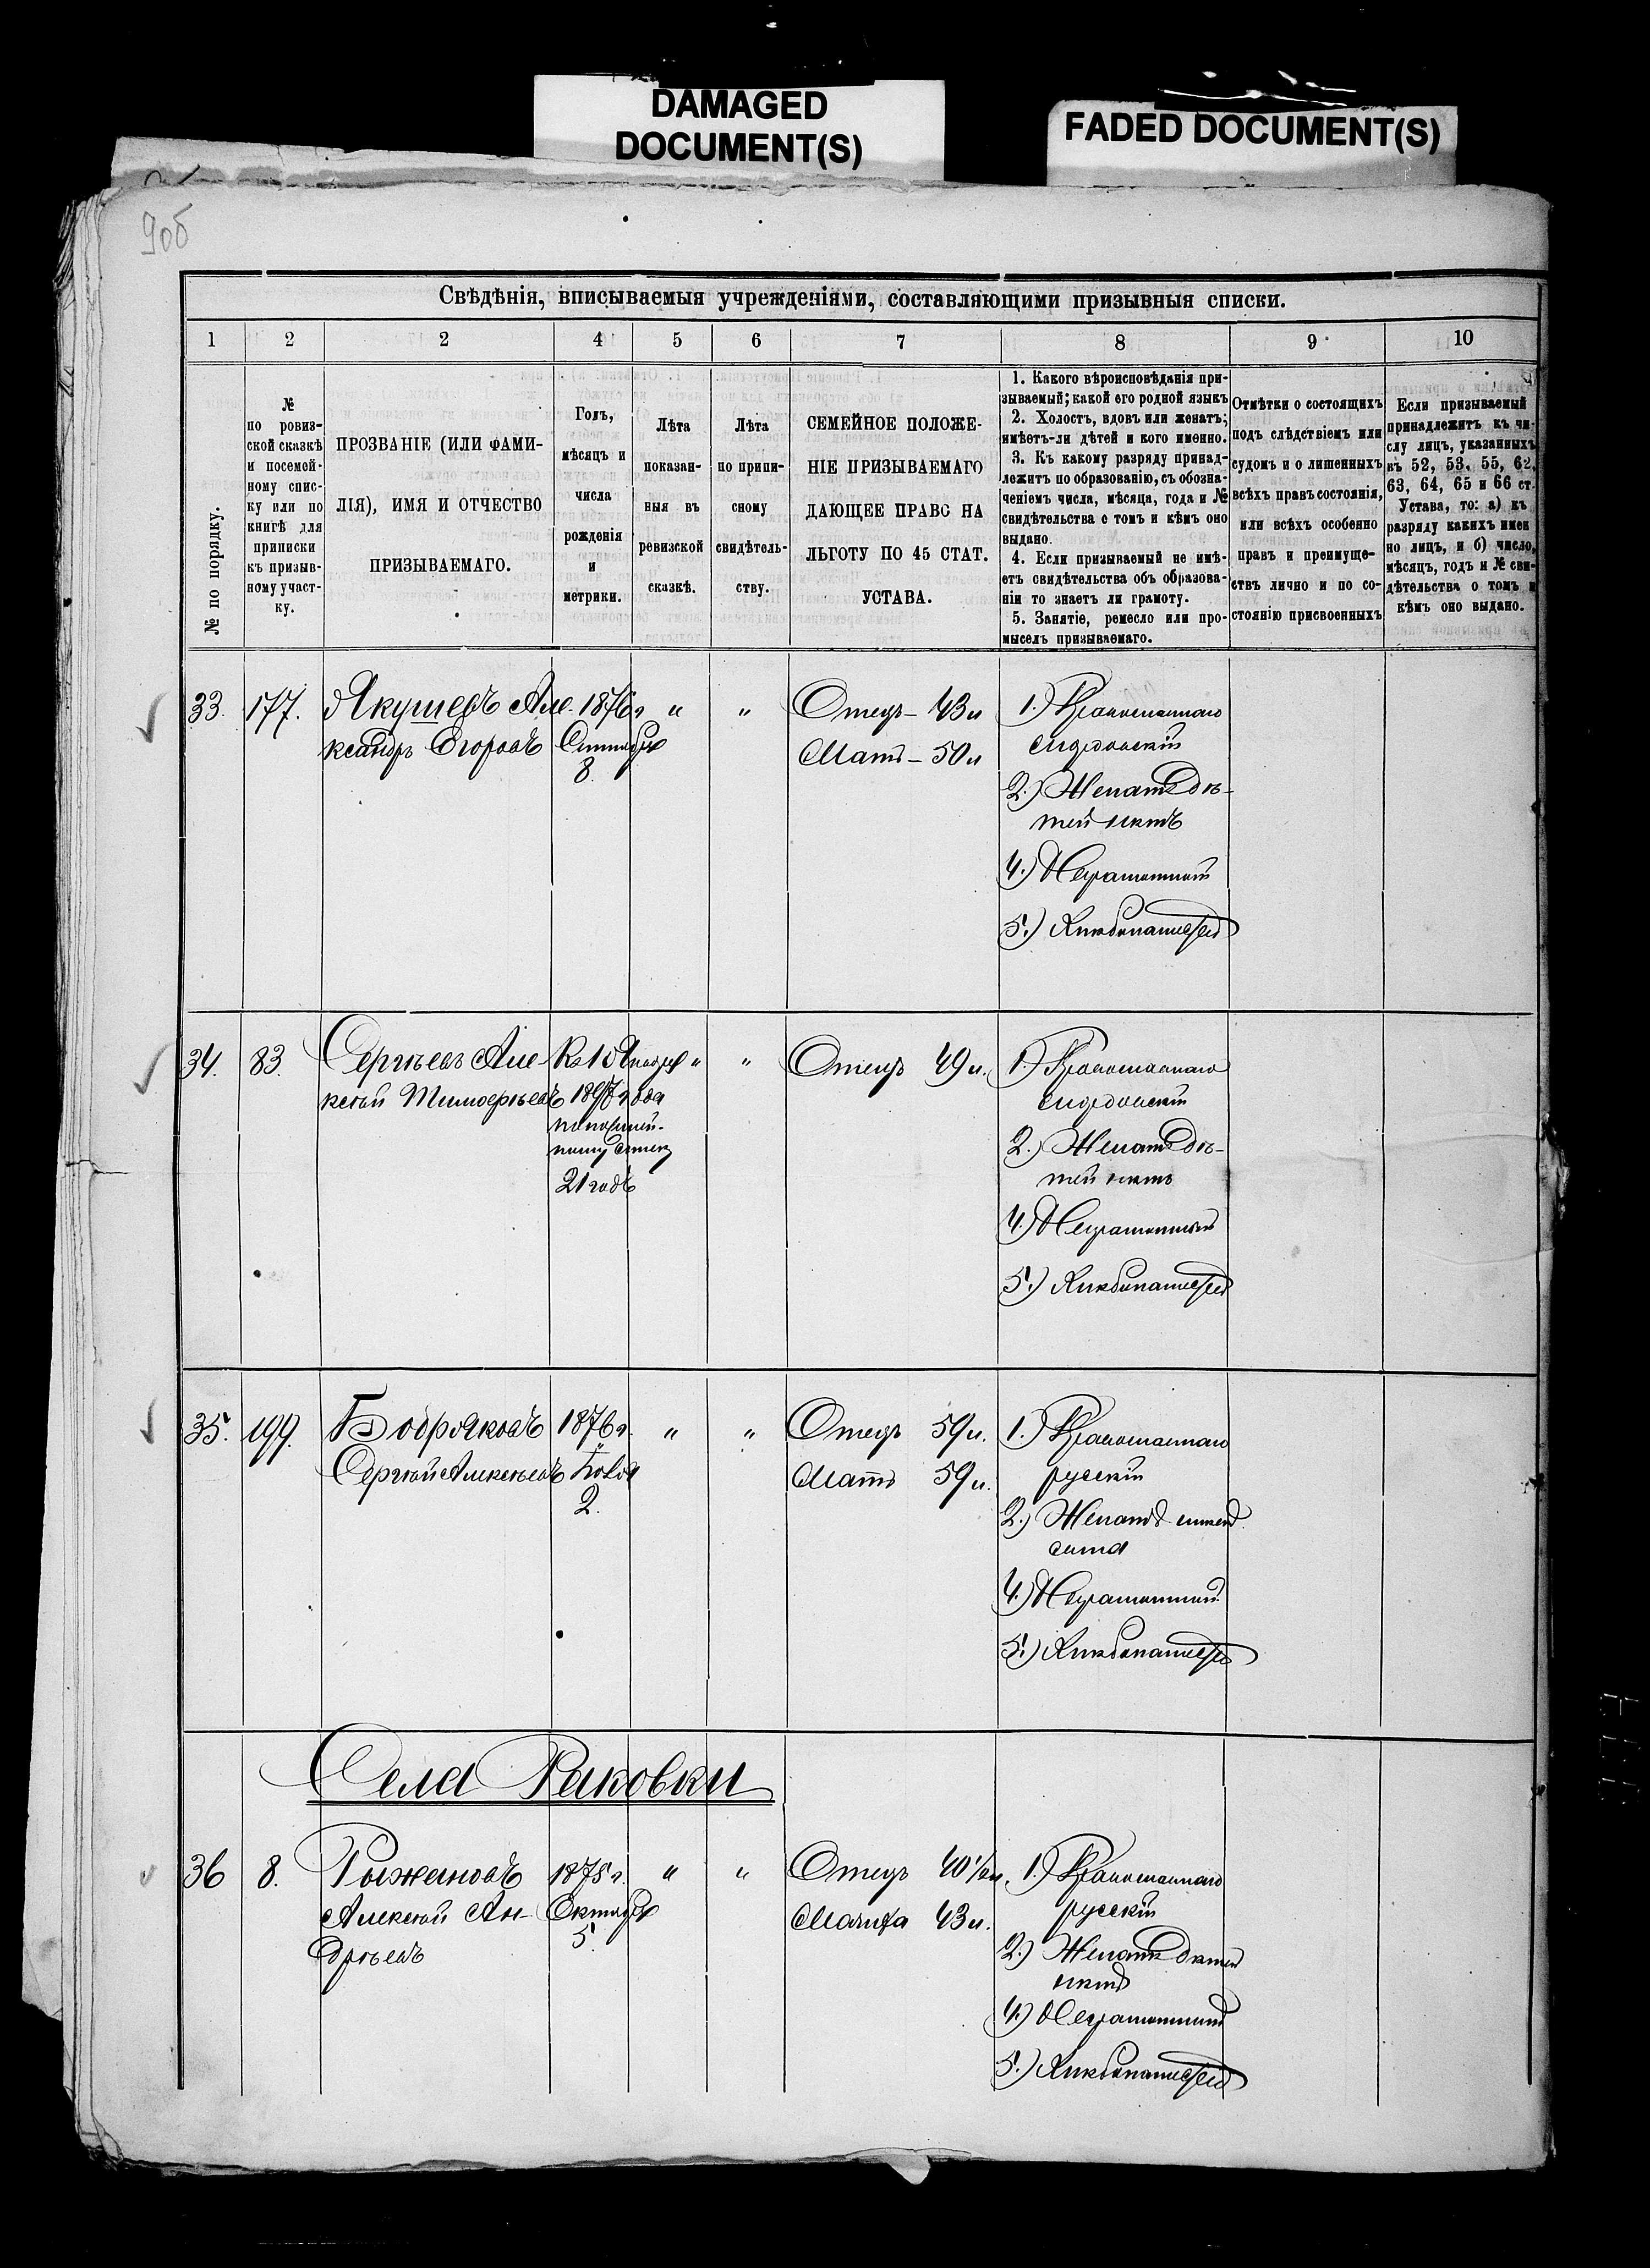 DAMAGED
DOCUMENT(S)
FADED DOCUMENT(S)
9об
Свѣдѣнія, вписываемыя учрежденіями, составляющими призывныя списки.
1 2 2 4 5 6 7 8 9 10
№ по порядку.
№
по ровиз-
ской сказкѣ
и посемей-
ному спис-
ку или по
книгѣ для
приписки
къ призыв-
ному участ-
ку.
ПРОЗВАНІЕ (ИЛИ ФАМИ-
ЛІЯ), ИМЯ И ОТЧЕСТВО
ПРИЗЫВАЕМАГО.
Годъ,
мѣсяцъ и
числа
рожденія
и
метрики.
Лѣта
показан-
ныя въ
ревизской
сказкѣ.
Лѣта
по припи-
сному
свидѣтель-
ству.
СЕМЕЙНОЕ ПОЛОЖЕ-
НІЕ ПРИЗЫВАЕМАГО
ДАЮЩЕЕ ПРАВО НА
ЛЬГОТУ ПО 45 СТАТ.
УСТАВА.
1. Какого вѣроисповѣданія при-
зываемый; какой его родной языкъ
2. Холостъ, вдовъ или женатъ;
имѣетъ-ли дѣтей и кого именно.
3. Къ какому разряду принад-
лежитъ по образованію, съ обозна-
ченіемъ числа, мѣсяца, года и №
свидѣтельства о томъ и кѣмъ оно
выдано.
4. Если призываемый не имѣ-
етъ свидѣтельства объ образова-
ніи то знаетъ ли грамоту.
5. Занятіе, ремесло или про-
мыселъ призываемаго.
Отмѣтки о состоящихъ
подъ слѣдствіемъ или
судомъ и о лишенныхъ
всѣхъ правъ состоянія,
или всѣхъ особенно
правъ и преимуще-
ствъ лично и по со-
стоянію присвоенныхъ
Если призываемый
принадлежитъ къ чи-
слу лицъ, указанныхъ
въ 52, 53, 55, 62,
63, 64, 65 и 66 ст.
Устава, то: а) къ
разряду какихъ имен
но лицъ, и б) число,
мѣсяцъ, годъ и № сви-
дѣтельства о томъ и
кѣмъ оно выдано.
33. 177. Якушевъ Але- 1876г " " Отецъ - 43 л 1.) Православнаго
ксандръ Егоровъ Сентября Мать - 50 л
8.
2.) Женатъ дѣ-
тей нѣтъ
4.) Неграмотный
5.) Хлѣбопашецъ
34. 83. Сергѣевъ Але- Къ 1 Января " " Отецъ 49 л. 1.) Православнаго
ксѣй Тимофѣевъ 1897 года
по посемей-
ному списку
21 годъ
2.) Женатъ дѣ-
тей нѣтъ
4.) Неграмотный
5.) Хлѣбопашецъ
35. 199. Бобряковъ 1876г. " " Отецъ 59 л. 1.) Православнаго
Сергѣй Алексѣевъ Мать 59 л. русскій
2.
2.) Женатъ имѣетъ
сына
4.) Неграмотный
5.) Хлѣбопашецъ
Села Раковки
36 8. Рыжановъ 1875г. " " Отецъ 40½ л. 1.) Православнаго
Алексѣй Ан- Октября Мачиха 43 л. русскій
дрѣевъ 5.
2.) Женатъ дѣтей
нѣтъ
4.) Неграмотный
5.) Хлѣбопашецъ